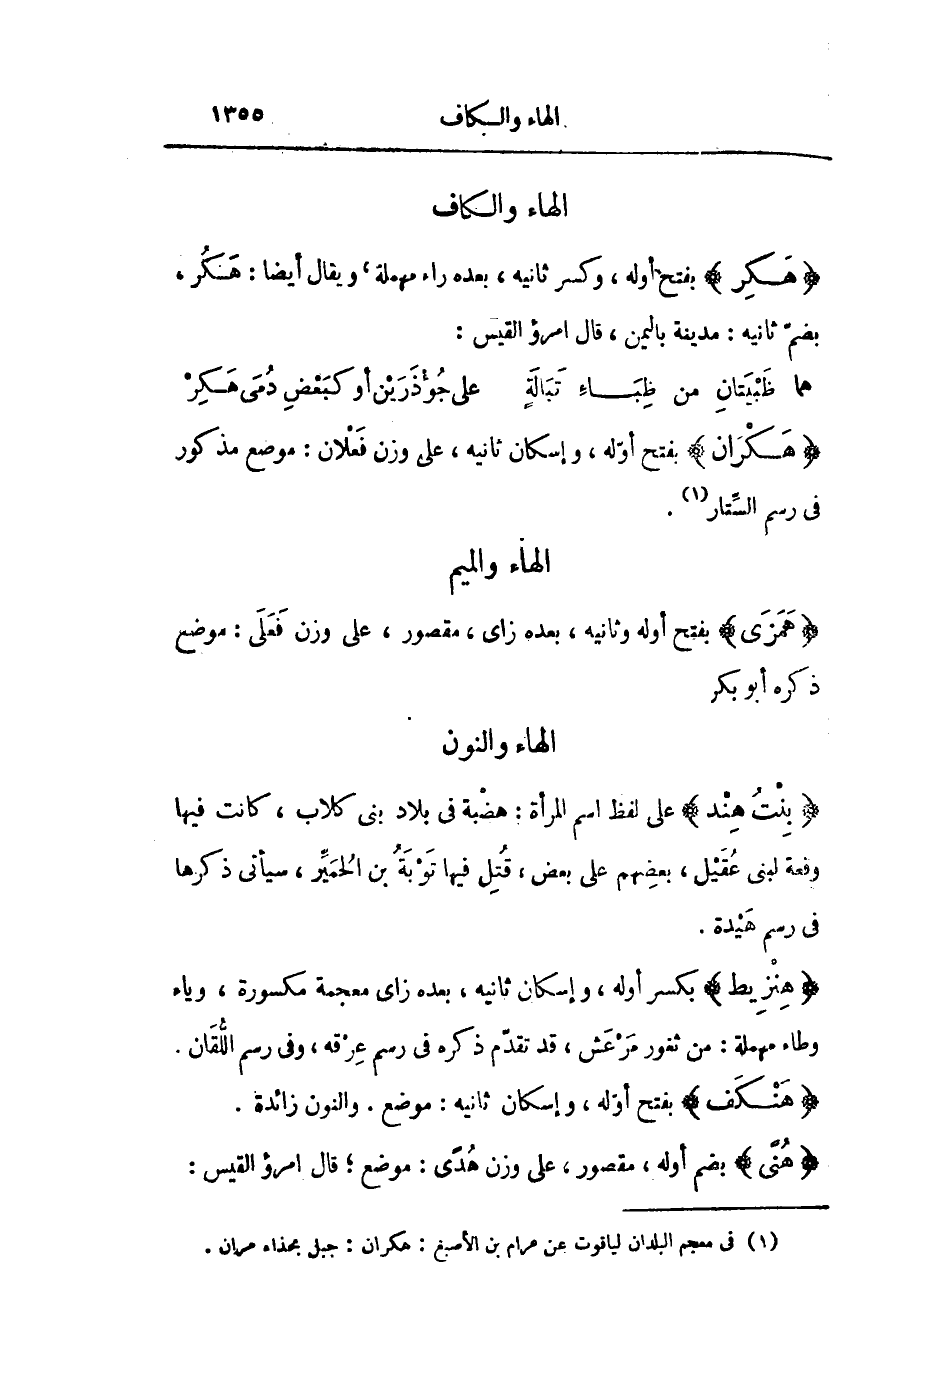 الهاء والكاف ١٣٥٥
الهاء والكاف
﴿ هَكِر ﴾ بفتح أوله ، وكسر ثانيه ، بعده راء مهملة ، ويقال أيضا : هَكُر ،
بضمّ ثانيه : مدينة باليمن ، قال امرؤ القيس :
هما ظَبْيَتانِ من ظِبَاءِ تَبَالَةٍ على جُؤْذَرَيْن أو كبَعْضِ دُمَى هَكِرْ
﴿ هَكْرَان ﴾ بفتح أوّله ، وإسكان ثانيه ، على وزن فَعْلان : موضع مذكور
فى رسم السِّتار(١) .
الهاء والميم
﴿ هَمَزَى ﴾ بفتح أوله وثانيه ، بعده زاى ، مقصور ، على وزن فَعَلَى : موضع
ذكره أبو بكر
الهاء والنون
﴿ بِنْتُ هِنْد ﴾ على لفظ اسم المرأة : هضْبة فى بلاد بنى كلاب ، كانت فيها
وقعة لبنى عُقَيْل ، بعضِهم على بعض ، قُتِل فيها تَوْبَةُ بن الحُمَيِّر ، سيأتى ذكرها
فى رسم هَيْدة .
﴿ هِنْزِيط ﴾ بكسر أوله ، وإسكان ثانيه ، بعده زاى معجمة مكسورة ، وياء
وطاء مهملة : من ثغور مَرْعَش ، قد تقدّم ذكره فى رسم عِرْقه ، وفى رسم اللُّقَان .
﴿ هَنْكَف ﴾ بفتح أوّله ، وإسكان ثانيه : موضع . والنون زائدة .
﴿ هُنَّى ﴾ بضم أوله ، مقصور ، على وزن هُدًى : موضع ؛ قال امرؤ القيس :
(١) فى معجم البلدان لياقوت عن عرام بن الأصبغ : هكران : جبل بحذاء مران .